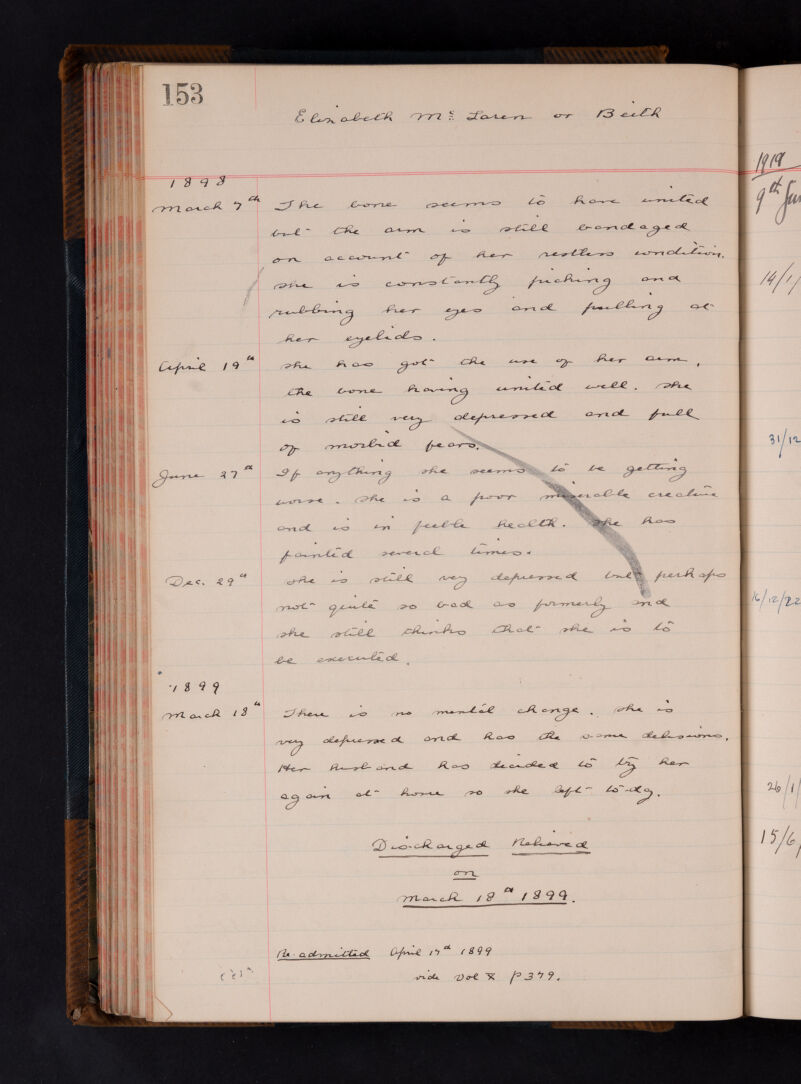 153
Elizabeth Mc Laren or Beith
1898
March 7th The bone seems to have united
but the arm is still bandaged
on account of her restless condition.
She is constantly picking and
rubbing her eyes and pulling at
her eyelids.
April 19th She has got the use of her arm,
the bone having united well. She
is still very depressed and full
of morbid fears.
June 27th If anything she seems to be getting
worse. She is a poor miserable creature
and is in feeble health. She has
fainted several times.
Dec. 29th She is still very depressed but perhaps
not quite so bad as formerly and
she still thinks that she is to
be executed.
1899
March 18th There is no mental change. She is
very depressed and has the same delusions.
Her husband has decided to try her
again at home so she left to-day.
Discharged Relieved
on
March 18th 1899.
Re-admitted April 17th 1899
vide Vol X P 379.
1919
9th
14/1/
31/12
16/12/22
26/1/
15/6/